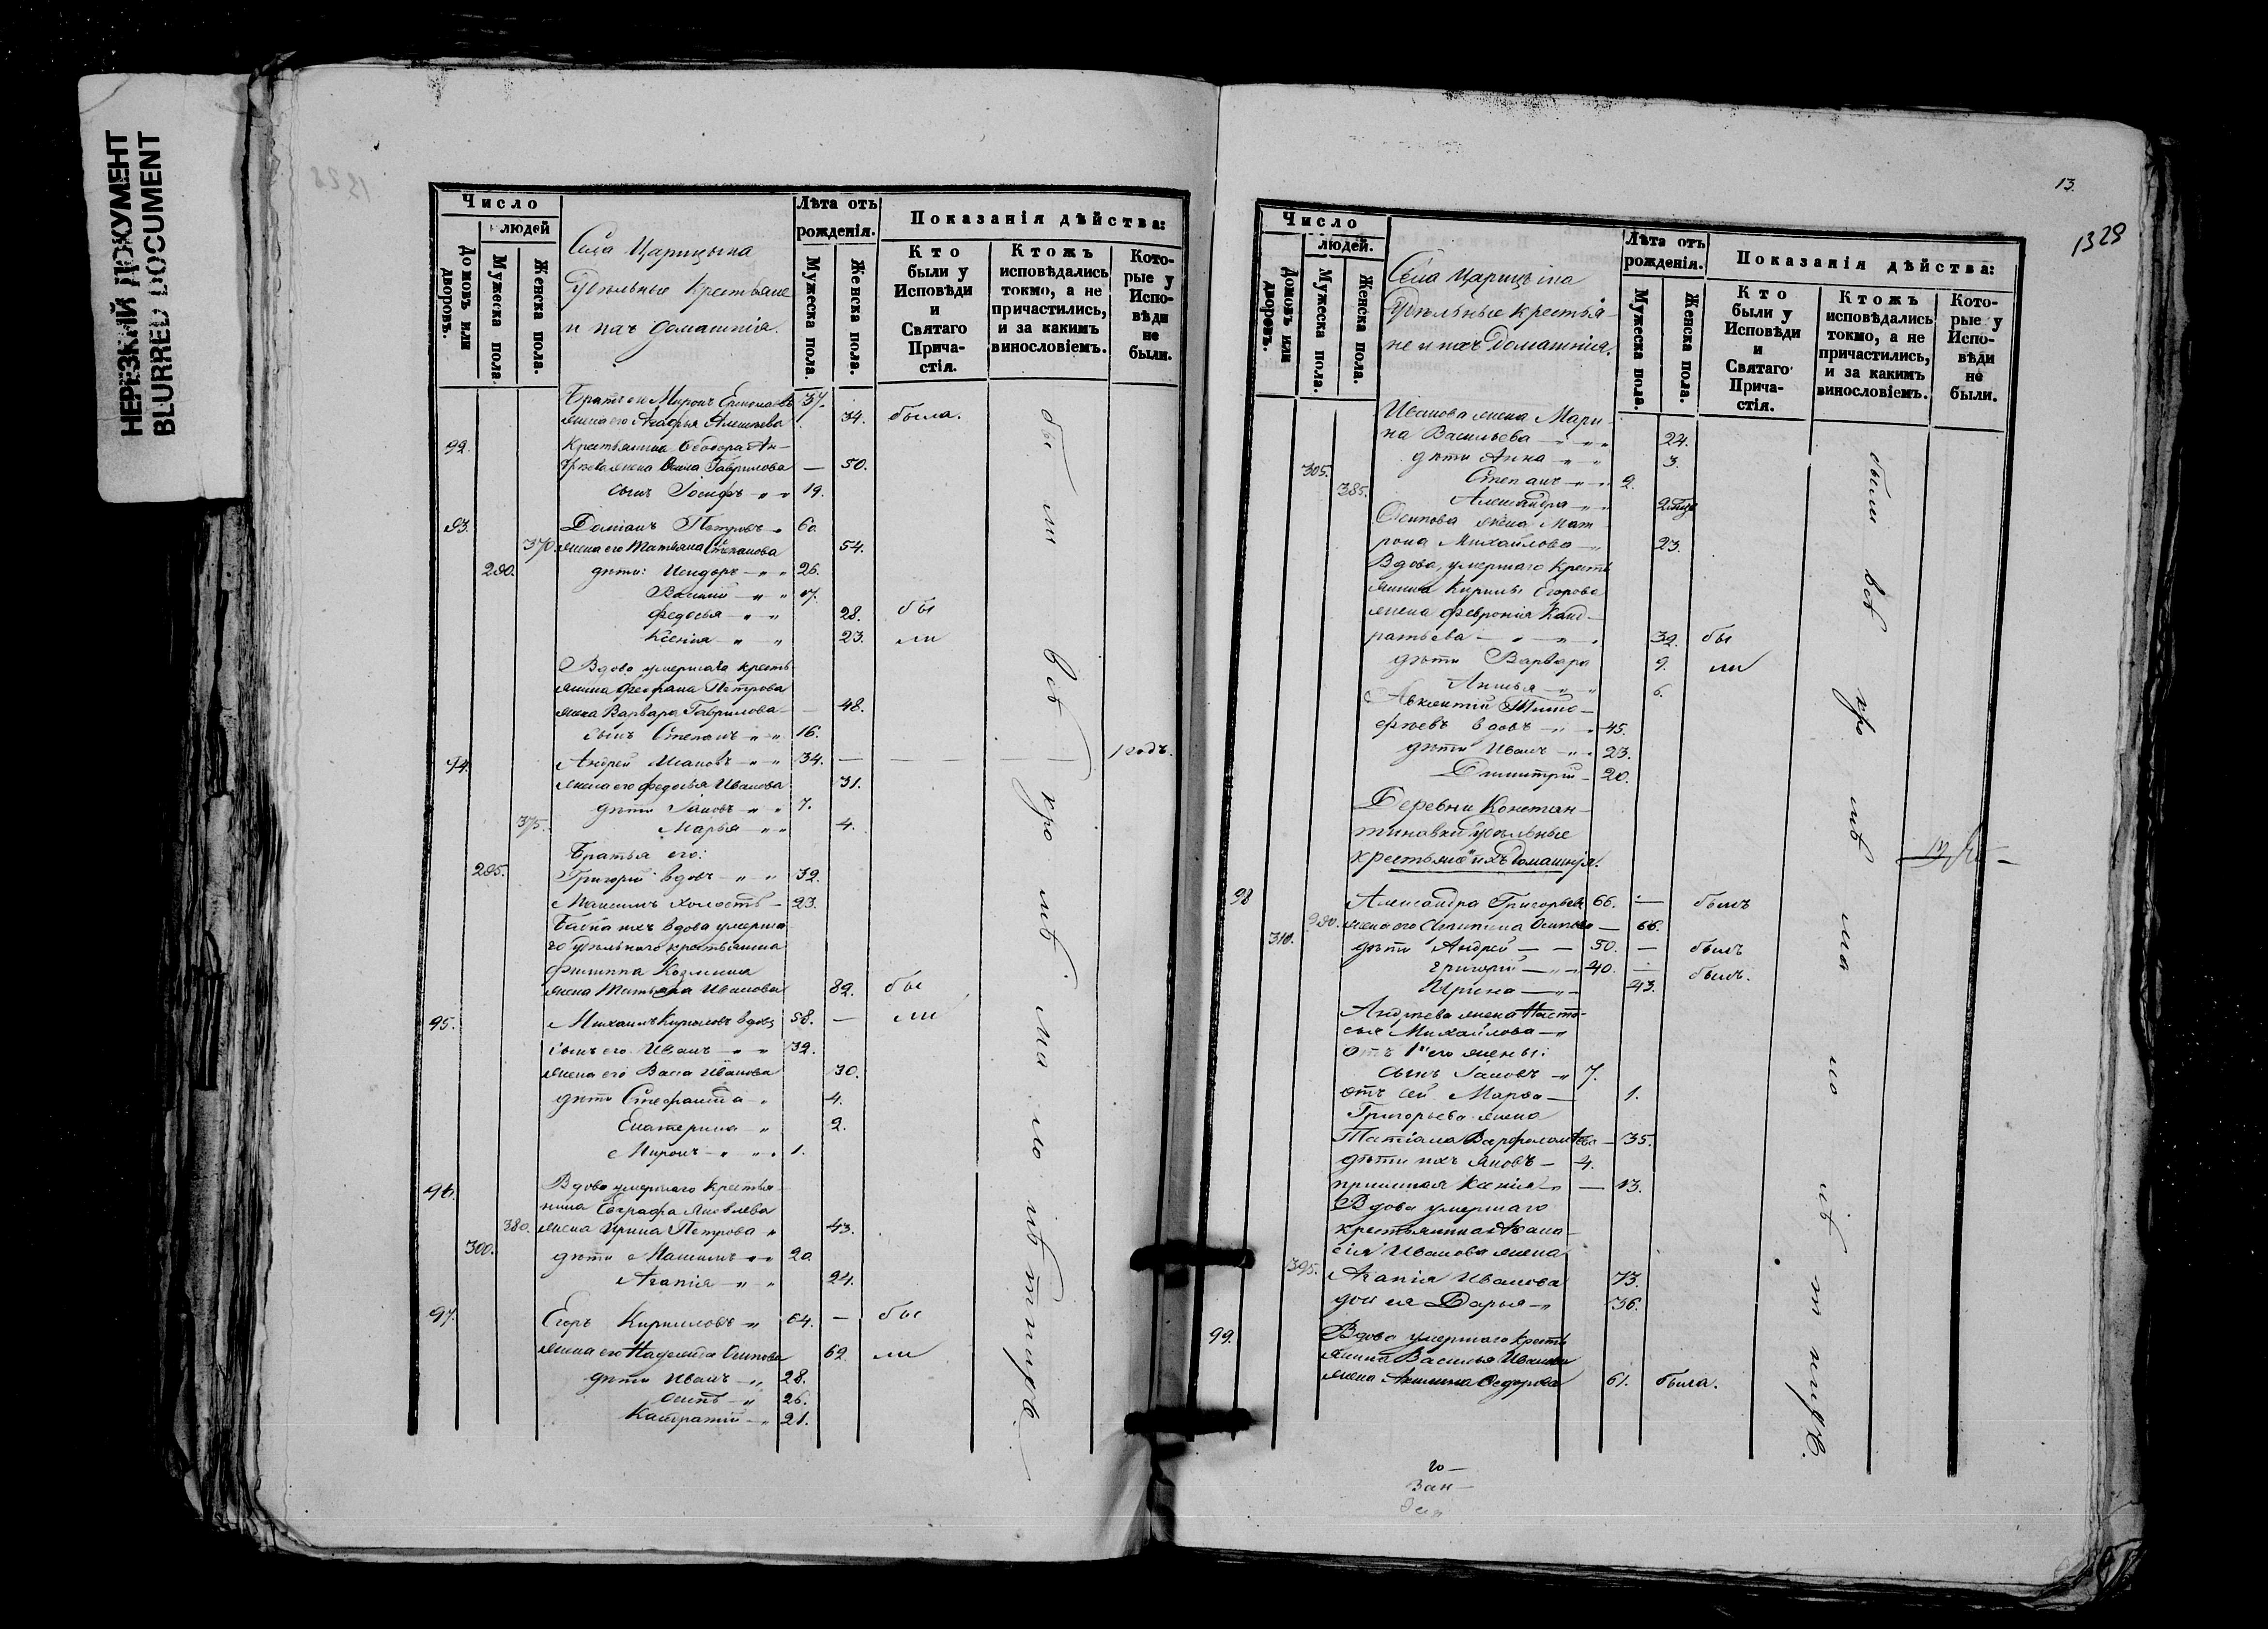 НЕРЕЗКИЙ ДОКУМЕНТ
BLURRED DOCUMENT
Число
людей
Домовъ или дворовъ.
Мужеска пола.
Женска пола.
Села Царицына
Удѣльные Крестьяне
и ихъ домашнія.
Лѣта отъ рожденія.
Мужеска пола.
Женска пола.
Показанія дѣйства:
Кто были у Исповѣди и Святаго Причастія.
Ктожъ исповѣдались токмо, а не причастились, и за какимъ винословіемъ.
Которые у Исповѣди не были.
Братъ его Миронъ 37.
жена его Агафья Алексѣева 34. была.
92. Крестьянина Ѳеодора Ан-
дреева жена Гаврилова — 50.
сынъ Іосифъ 19.
93. Даміанъ Петровъ 60
370. жена его Татьяна Степанова 54.
290. дѣти: Исидоръ 26.
Василій 17.
Федосья 28. бы
Ксенія 23. ли
Вдова умершаго кресть
янина Петрова
жена Варвара Гаврилова — 48.
сынъ Степанъ 16.
94. Андрей 34. — 1 годъ.
жена его Федосья Иванова 31.
дѣти Іаковъ 7.
375. Марья 4.
Братья его:
295. Григорій вдовъ 32.
Максимъ холостъ 23.
ихъ вдова умерша
го удѣльнаго крестьянина
Филиппа Козмина
жена Татьяна Иванова 82. бы
95. Михаилъ Кириловъ вдовъ 58. — ли
сынъ его Иванъ 32.
жена его Васса Иванова 30.
дѣти Стефанида 4.
Екатерина 2.
Миронъ 1.
96. Вдова умершаго крестья
нина Евграфа Яковлева
380. жена Ирина Петрова 43.
300. дѣти Максимъ 20
Агапія 24.
97. Егоръ Кирилловъ 64. — бы
жена его Надежда Осипова 62. ли
дѣти Иванъ 28.
Осипъ 26.
Кандратій 21.
были всѣ кромѣ малолѣтнихъ.
13.
1328
Число
людей.
Домовъ или дворовъ.
Мужеска пола.
Женска пола.
Села Царицына
Удѣльные крестья-
не и ихъ домашнія.
Лѣта отъ рожденія.
Мужеска пола.
Женска пола.
Показанія дѣйства:
Кто были у Исповѣди и Святаго Причастія.
Ктожъ исповѣдались токмо, а не причастились, и за какимъ винословіемъ.
Которые у Исповѣди не были.
Иванова жена Мари-
на Васильева 24.
дѣти Анна 3.
305. Степанъ 2.
385. Александра
Осипова жена Мат-
рона Михайлова 23.
Вдова умершаго кресть
янина Кирилы Егорова
жена ФевроніяКанд-
ратьева 32. бы
дѣти Варвара 9. ли
6.
Тимо-
фѣевъ вдовъ 45.
дѣти Иванъ 23.
Димитрій 20.
Деревни Констан-
тиновки Удѣльные
крестьяне и ихъ домашнія.
98 Григорьевъ 66. — былъ
390. жена его Осипова — 66.
310. дѣти Андрей 50. — былъ
Григорій 40. — былъ.
Ирина 43.
Андреева жена Наста-
сья Михайлова
отъ 1й его жены:
сынъ Іаковъ 7.
отъ сей Марѳа 1.
Григорьева жена
Татіана Варфоломѣева — 35.
дѣти ихъ Яковъ 4.
Ксенія — 13.
Вдова умершаго
крестьянина Аѳана-
сія Иванова жена
395. Агапія Иванова 73.
дочь ея Дарья 36.
99. Вдова умершаго кресть
янина Василья Иванова
жена Акилина Ѳедорова 61. была.
были всѣ кромѣ малолѣтнихъ.